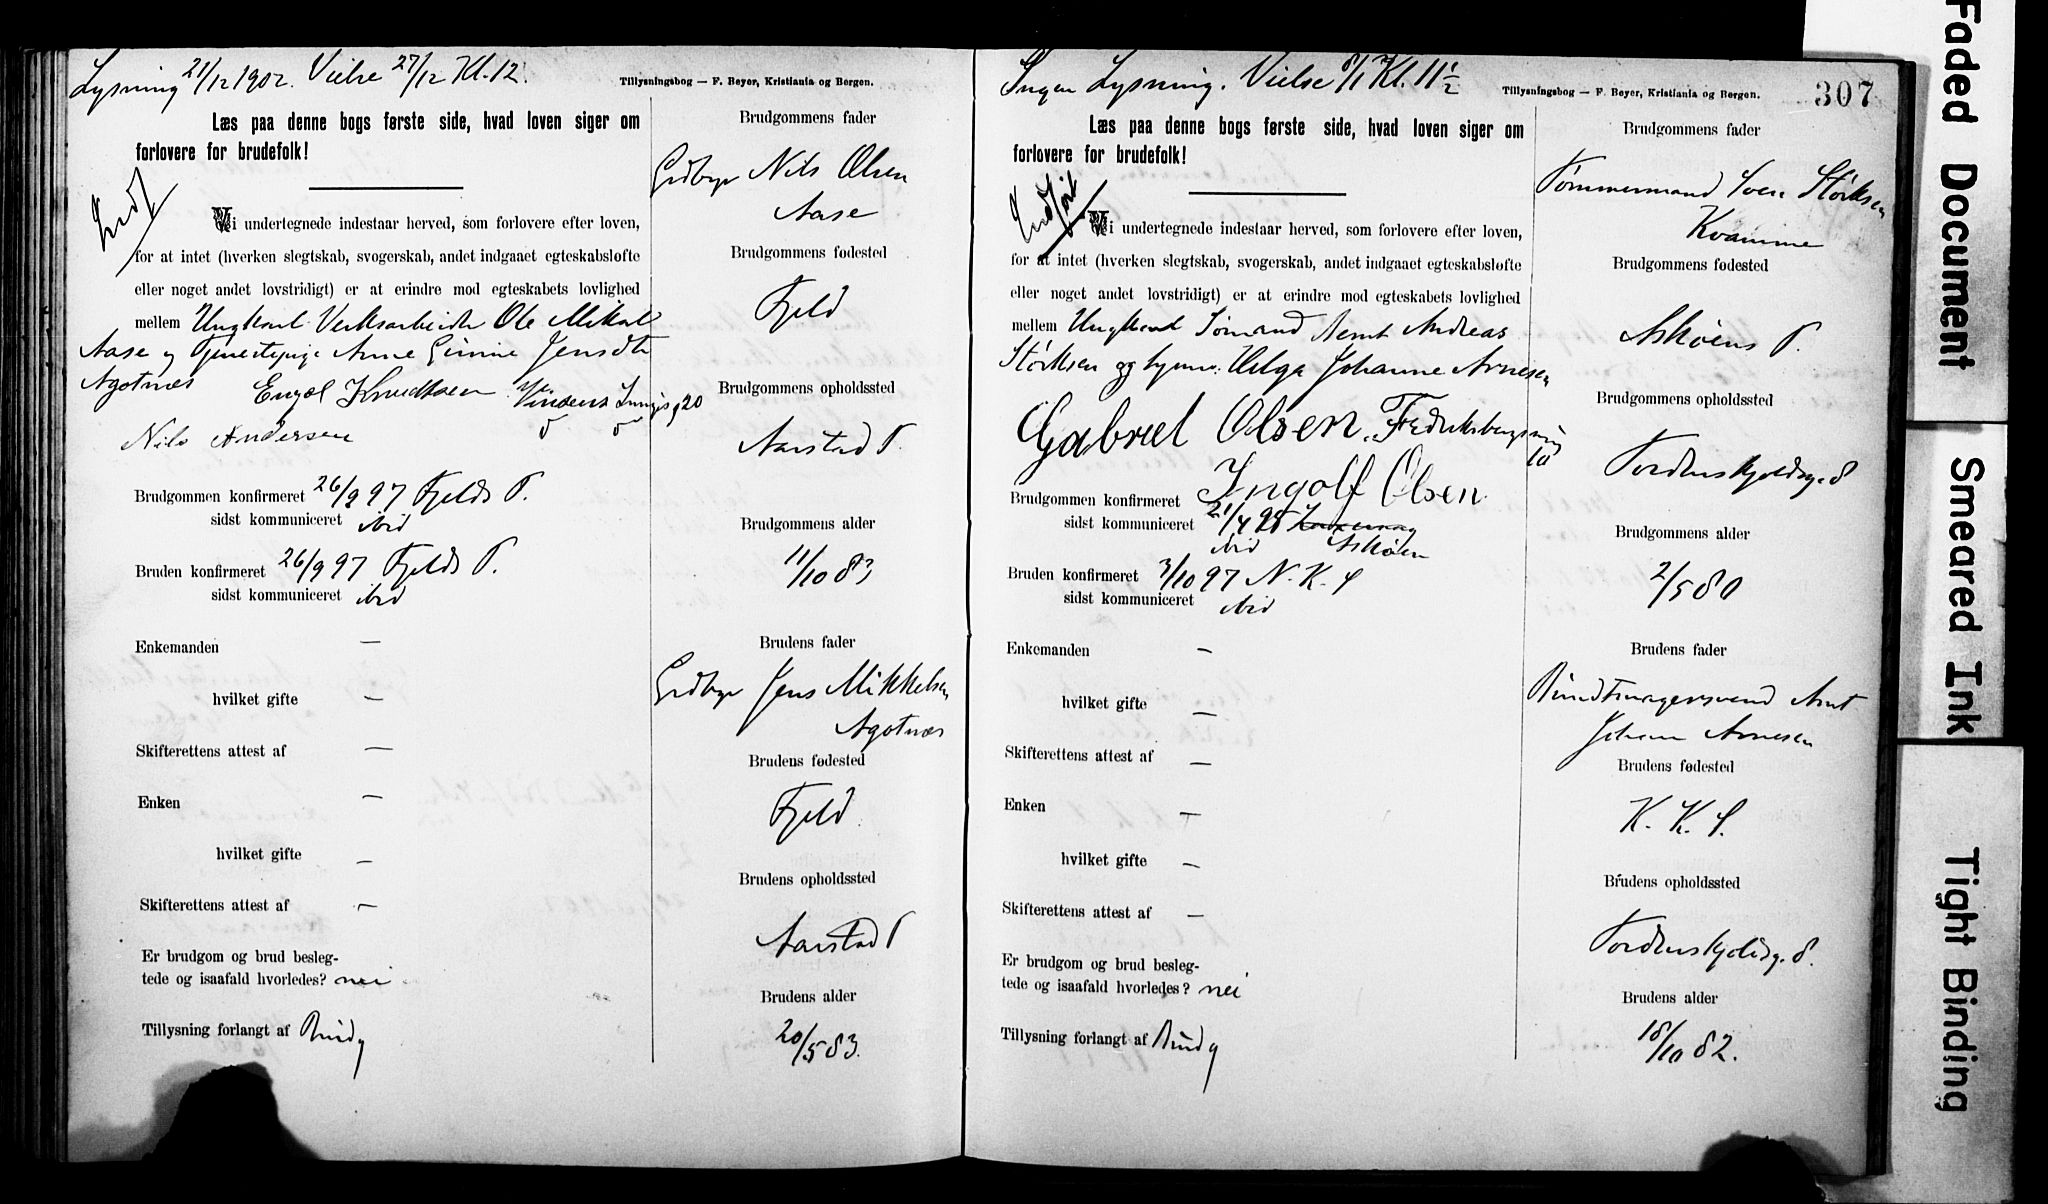 Lysning 21/12 1902. Vielse 27/12 Kl. 12.
Tillysningsbog — F. Beyer, Kristiania og Bergen.
Læs paa denne bogs første side, hvad loven siger om
forlovere for brudefolk!
Indf
Vi undertegnede indestaar herved, som forlovere efter loven,
for at intet (hverken slegtskab, svogerskab, andet indgaaet egteskabsløfte
eller noget andet lovstridigt) er at erindre mod egteskabets lovlighed
mellem Ungkarl Verksarbeider Ole Mikal
Aase og Tjenestepige Anne Jensdtr
Agotnæs Engel Knudtsen 20
Nils Andersen
Brudgommen konfirmeret 26/9 97 Fjelds P.
sidst kommuniceret ibid
Bruden konfirmeret 26/9 97 Fjelds P.
sidst kommuniceret ibid
Enkemanden —
hvilket gifte —
Skifterettens attest af —
Enken —
hvilket gifte —
Skifterettens attest af —
Er brudgom og brud besleg-
tede og isaafald hvorledes? nei
Tillysning forlangt af Brudg
Brudgommens fader
Grdbgr Nils Olsen
Aase
Brudgommens fødested
Fjeld
Brudgommens opholdssted
Aarstad P.
Brudgommens alder
11/10 83
Brudens fader
Grdbgr Jens Mikkelsen
Agotnæs
Brudens fødested
Fjeld
Brudens opholdssted
Aarstad P
Brudens alder
20/5 83.
Ingen Lysning. Vielse 8/1 Kl. 11 1/2
Tillysningsbog — F. Beyer, Kristiania og Bergen.
307
Læs paa denne bogs første side, hvad loven siger om
forlovere for brudefolk!
Indført
Vi undertegnede indestaar herved, som forlovere efter loven,
for at intet (hverken slegtskab, svogerskab, andet indgaaet egteskabsløfte
eller noget andet lovstridigt) er at erindre mod egteskabets lovlighed
mellem Ungkarl Sømand Bernt Andreas
Størksen og Helga Johanne Arnesen
Gabriel Olsen, Fredriksbergsvei
10
Ingolf Olsen
Brudgommen konfirmeret
sidst kommuniceret 21/4 95
ibid Askøen
Bruden konfirmeret 3/10 97 N. K. S
sidst kommuniceret ibid
Enkemanden —
hvilket gifte —
Skifterettens attest af —
Enken —
hvilket gifte —
Skifterettens attest af —
Er brudgom og brud besleg-
tede og isaafald hvorledes? nei
Tillysning forlangt af Brudg
Brudgommens fader
Tømmermand Iver Størksen
Kvamme
Brudgommens fødested
Askøens P.
Brudgommens opholdssted
Tordenskjoldsg. 8
Brudgommens alder
2/5 80
Brudens fader
Bundtmagersvend Arnt
Johan Arnesen
Brudens fødested
K. K. S.
Brudens opholdssted
Tordenskjoldsg. 8.
Brudens alder
18/10 82.
Faded Document
Smeared Ink
Tight Binding